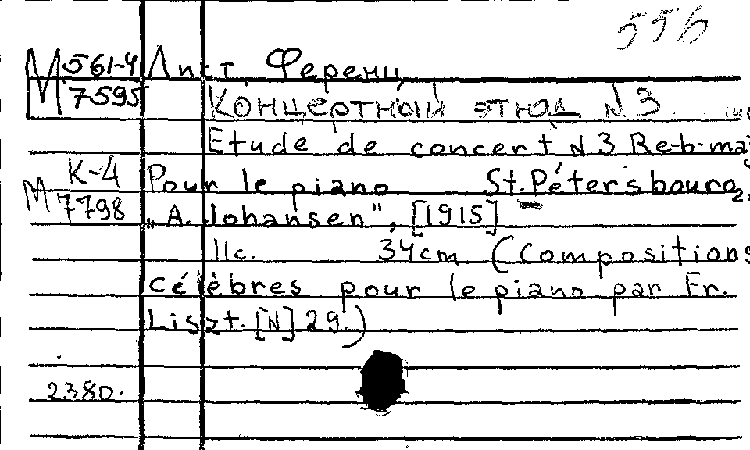 556
М 561-4 Лист, Ференц
7595 Концертный этюд N 3
Etude de concert N 3 Re-b-maj
К-4 Pour le piano St. Pétersbourg,
М 7798 „A. Johansen", [1915]
11с. 34cm (Compositions
célèbres pour le piano par Fr.
Liszt. [N] 29.)
2380.